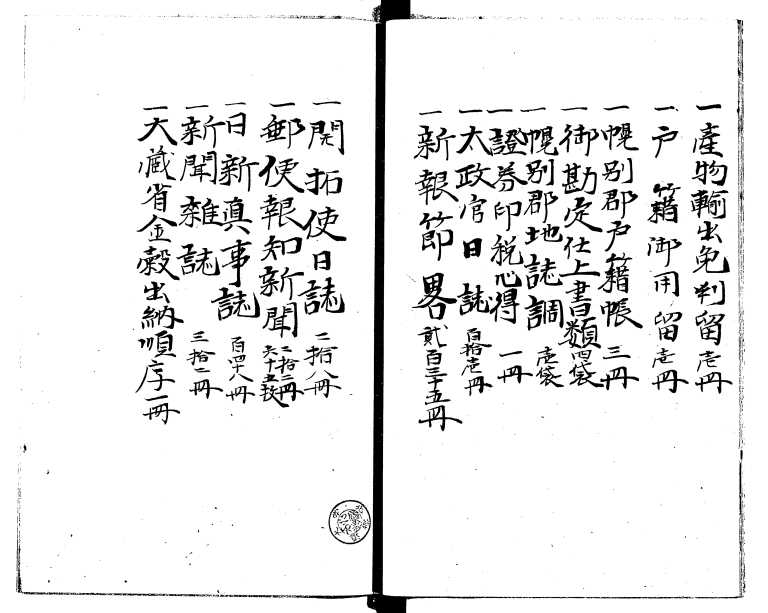 一産物輸出免判留壱冊
一戸籍御用留壱冊
一幌別郡戸籍帳三冊
一御勘定仕上書類四袋
一幌別郡地誌調壱袋
一證券印税心得一冊
一太政官日誌百拾壱冊
一新報節畧貳百三十五冊
一開拓使日誌二拾八冊
一郵便報知新聞二拾二冊六十五枚
一日新真事誌百四十八冊
一新聞雑誌三拾二冊
一大蔵省金穀出納順序一冊